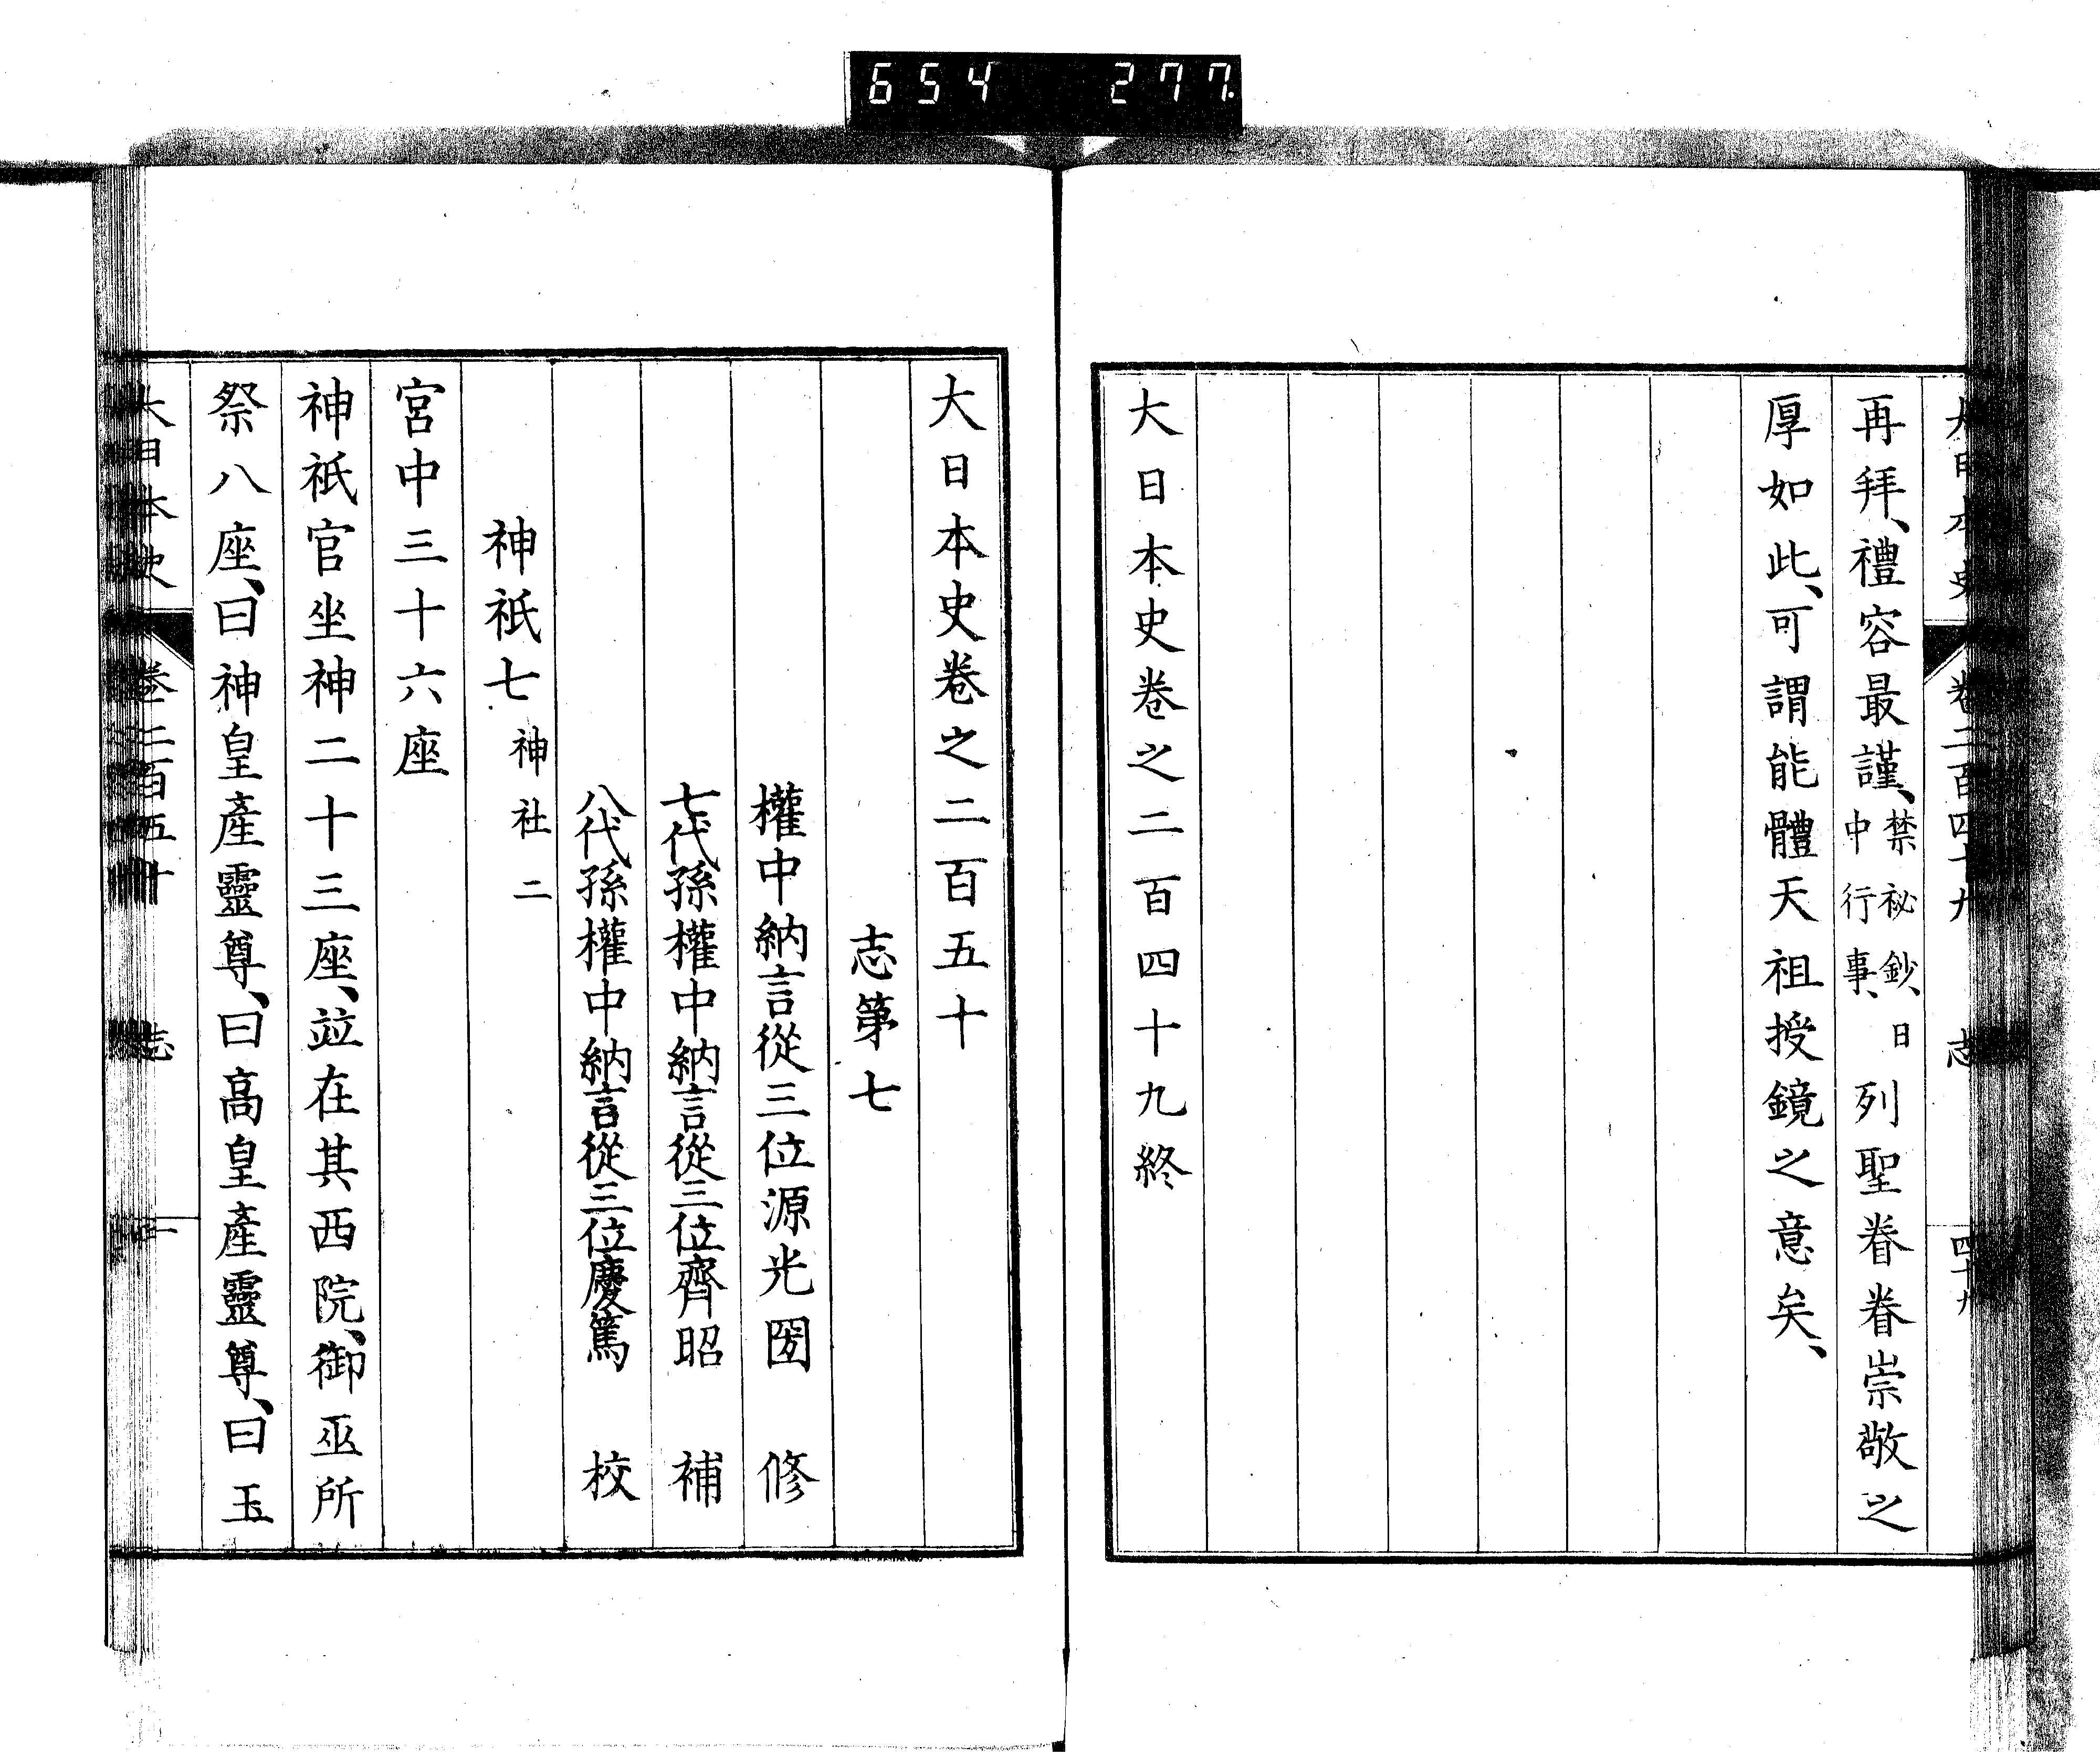 654 277.
大日本史 卷二百四十九 志 四十九
再拜、禮容最謹、禁祕鈔、日中行事、列聖眷眷崇敬之
厚如此、可謂能體天祖授鏡之意矣、
大日本史卷之二百四十九終
大日本史卷之二百五十
志第七
權中納言從三位源光圀 修
七代孫權中納言從三位齊昭 補
八代孫權中納言從三位慶篤 校
神祇七 神社二
宮中三十六座
神祇官坐神二十三座、竝在其西院、御巫所
祭八座、曰神皇產靈尊、曰高皇產靈尊、曰玉
大日本史 卷二百五十 志